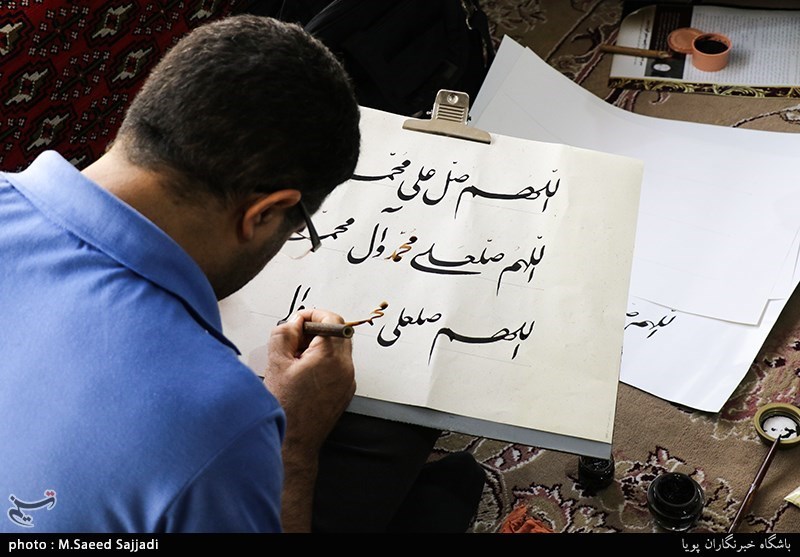 اللّهم صلّ علی محمّد
اللّهم صلعلی محمّد وآل محمد
اللهم صلعلی محمد وال
اللهم
تسنیم
photo : M.Saeed Sajjadi
باشگاه خبرنگاران پویا